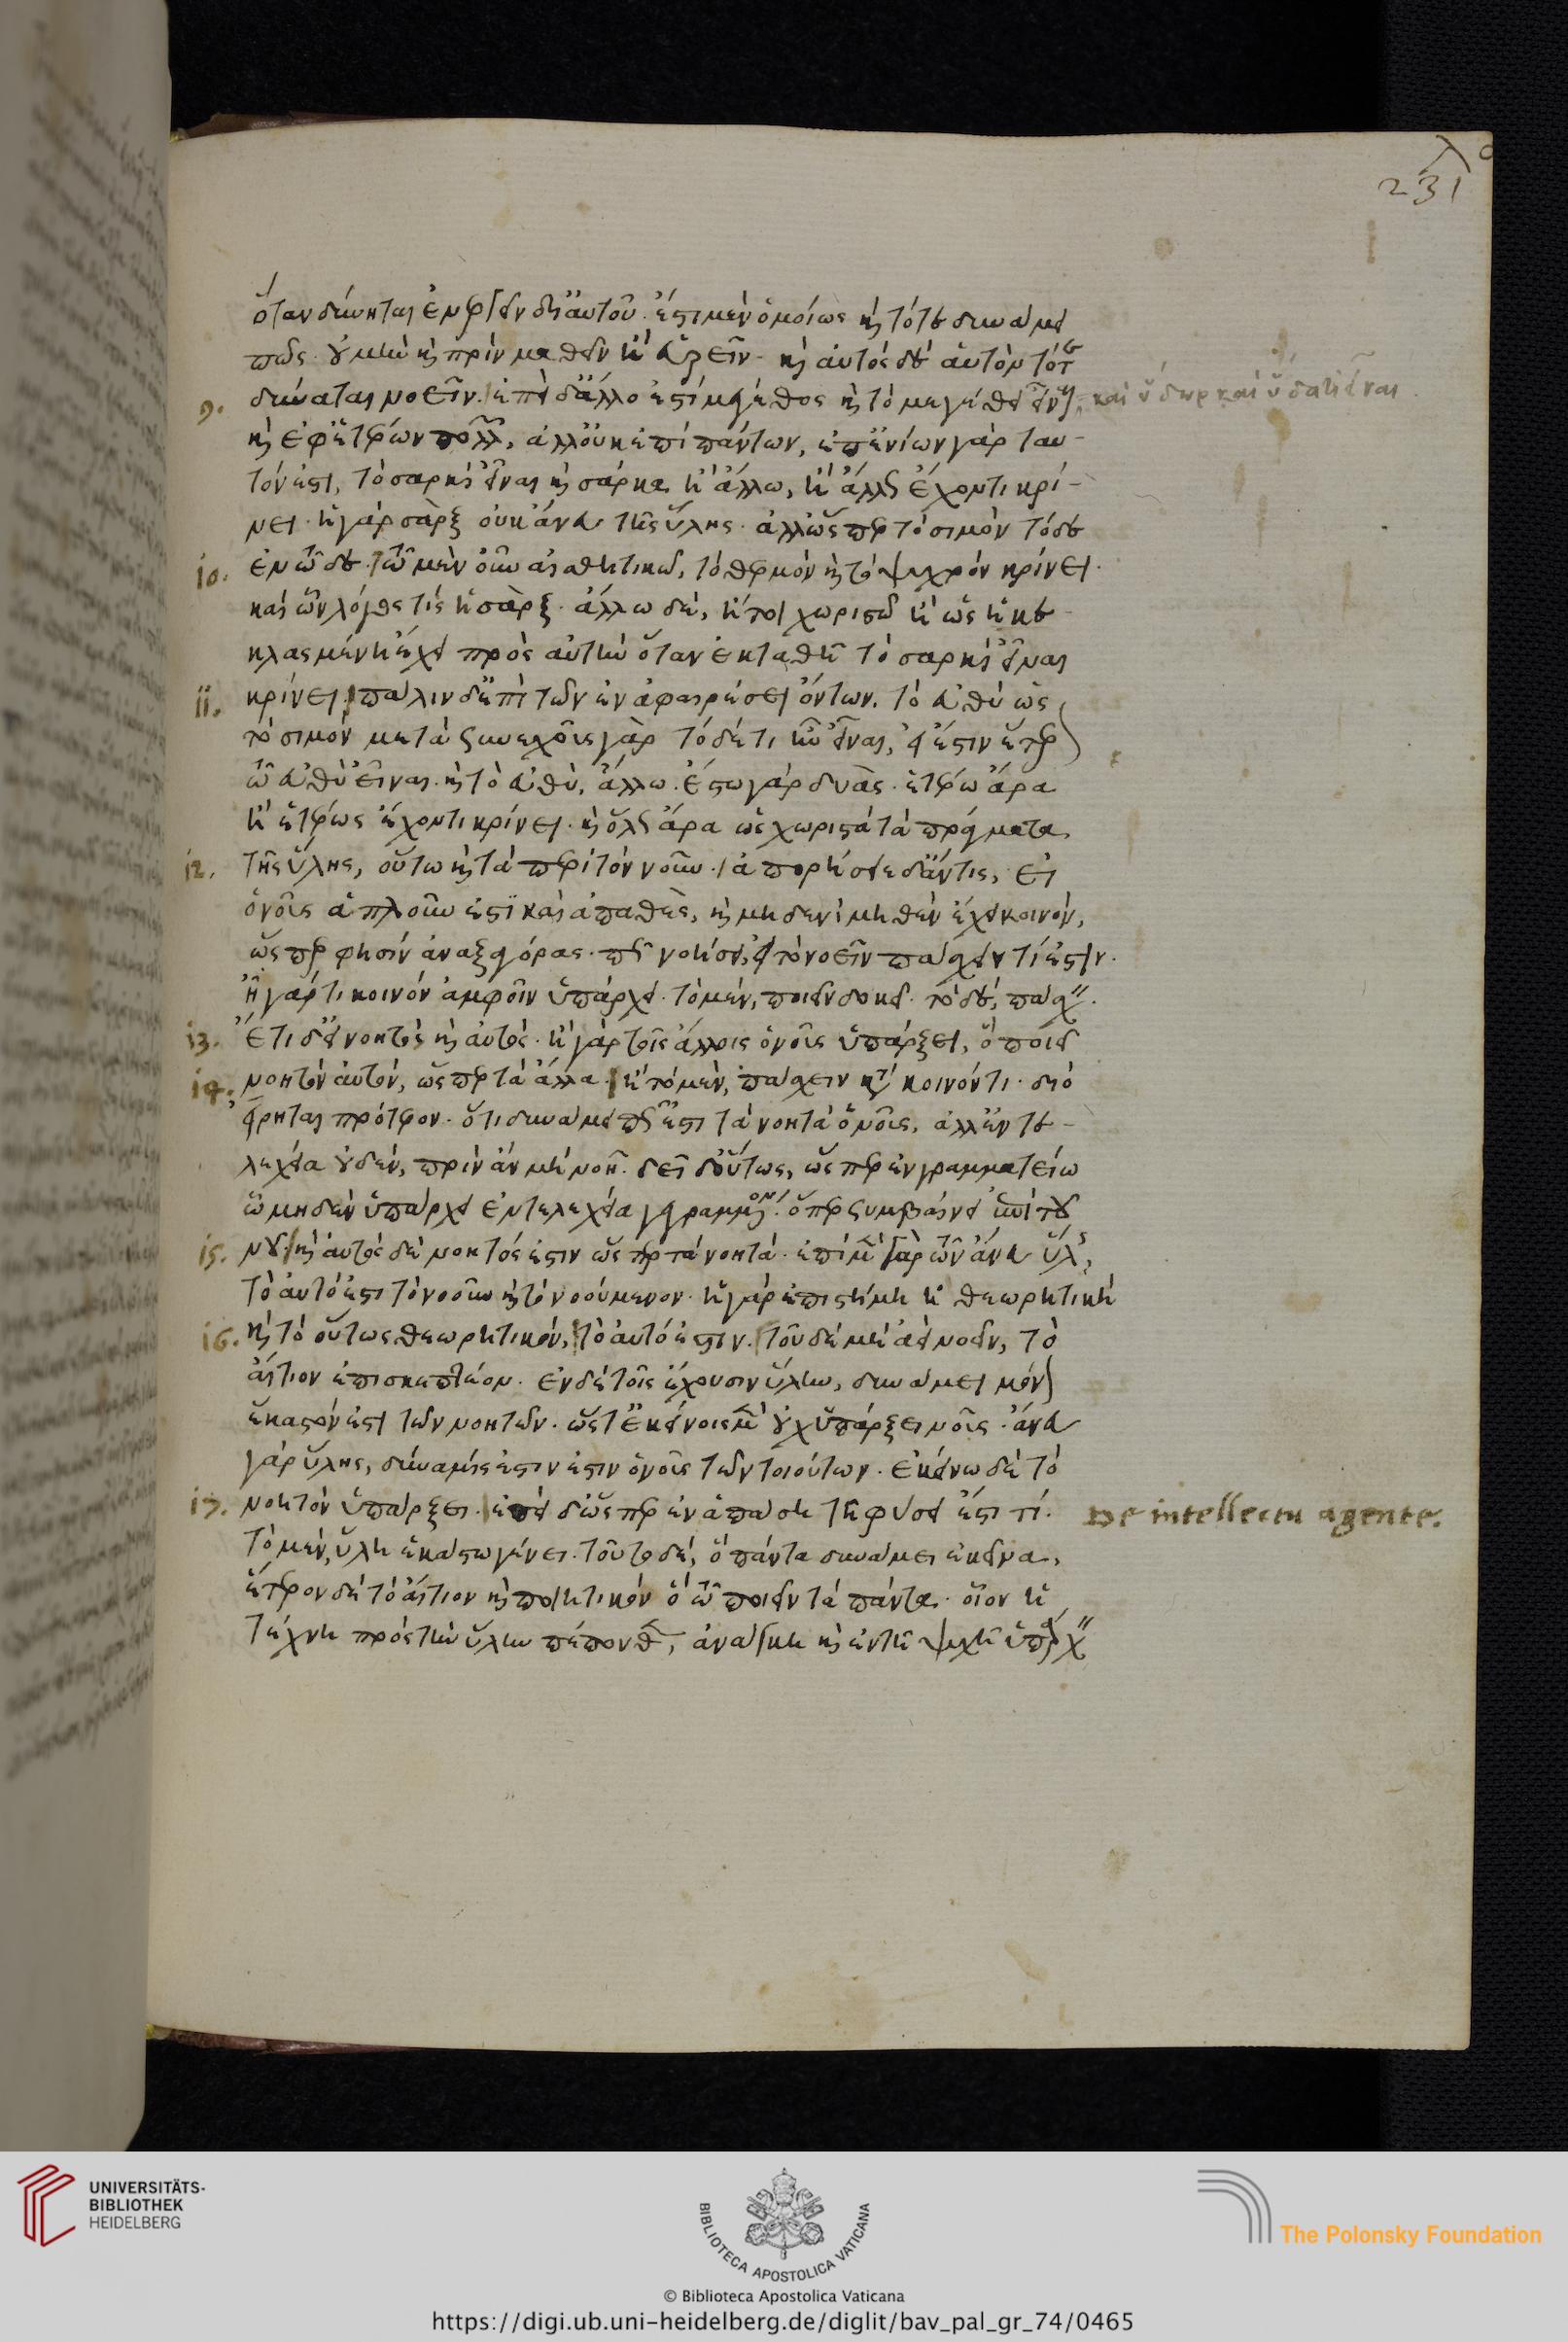 231
ὅταν δύνηται ἐνεργεῖν δι' αὑτοῦ. ἔστι μὲν ὁμοίως καὶ τότε δυνάμει
πως. οὐ μὴν καὶ πρὶν μαθεῖν ἢ εὑρεῖν. καὶ αὐτὸς δὲ αὑτὸν τότε
9. δύναται νοεῖν. ἐπεὶ δ' ἄλλο ἐστὶ μέγεθος καὶ τὸ μεγέθει εἶναι, καὶ ὕδωρ καὶ ὕδατι εἶναι
καὶ ἐφ' ἑτέρων πολλῶν, ἀλλ' οὐκ ἐπὶ πάντων, ἐπ' ἐνίων γὰρ ταυ-
τόν ἐστι, τὸ σαρκὶ εἶναι καὶ σάρκα ἢ ἄλλω, ἢ ἄλλως ἔχοντι κρί-
νει. ἡ γὰρ σὰρξ οὐκ ἄνευ τῆς ὕλης. ἀλλ' ὥσπερ τὸ σιμὸν τόδε
10. ἐν τῶδε. τῶ μὲν οὖν αἰσθητικῶ, τὸ θερμὸν καὶ τὸ ψυχρὸν κρίνει.
καὶ ὧν λόγος τίς ἡ σὰρξ. ἄλλω δὲ, ἤτοι χωριστῶ ἢ ὡς ἡ κε-
κλασμένη ἔχει πρὸς αὑτὴν ὅταν ἐκταθῆ τὸ σαρκὶ εἶναι
11. κρίνει. πάλιν δ' ἐπὶ τῶν ἐν ἀφαιρέσει ὄντων, τὸ εὐθὺ ὡς
τὸ σιμὸν μετὰ συνεχοῦς γὰρ τὸ δὲ τί ἦν εἶναι, εἰ ἔστιν ἕτερ
ον τῶ εὐθεῖ εἶναι καὶ τὸ εὐθὺ, ἄλλω. ἔστω γὰρ δυὰς. ἑτέρω ἄρα
ἢ ἑτέρως ἔχοντι κρίνει. καὶ ὅλως ἄρα ὡς χωριστὰ τὰ πράγματα
12. τῆς ὕλης, οὕτω καὶ τὰ περὶ τὸν νοῦν. ἀπορήσειε δ' ἄν τις, εἰ
ὁ νοῦς ἁπλοῦν ἐστὶ καὶ ἀπαθὲς, καὶ μηδενὶ μηθὲν ἔχει κοινὸν,
ὥσπερ φησὶν ἀναξαγόρας. πῶς νοήσει, εἰ τὸ νοεῖν πάσχειν τί ἐστιν.
ᾗ γάρ τι κοινὸν ἀμφοῖν ὑπάρχει. τὸ μὲν, ποιεῖν δοκεῖ. τὸ δὲ, πάσχειν.
13. ἔτι δ' εἰ νοητὸς καὶ αὐτὸς. ἢ γὰρ τοῖς ἄλλοις ὁ νοῦς ὑπάρξει, ὃ ποιεῖ
14. νοητὸν αὐτὸν, ὥσπερ τὰ ἄλλα. ἢ τὸ μὲν, πάσχειν κατὰ κοινόν τι. διὸ
εἴρηται πρότερον. ὅτι δυνάμει πώς ἐστι τὰ νοητὰ ὁ νοῦς, ἀλλ' ἐντε-
λεχεία οὐδὲν, πρὶν ἂν μὴ νοῆ. δεῖ δ' οὕτως, ὥσπερ ἐν γραμματείω
ὧ μηδὲν ὑπάρχει ἐντελεχεία γεγραμμένον. ὅπερ συμβαίνει ἐπὶ τοῦ
15. νοῦ. καὶ αὐτὸς δὲ νοητός ἐστιν ὥσπερ τὰ νοητά. ἐπὶ μὲν γὰρ τῶν ἄνευ ὕλης,
τὸ αὐτό ἐστι τὸ νοοῦν καὶ τὸ νοούμενον. ἡ γὰρ ἐπιστήμη ἡ θεωρητικὴ
16. καὶ τὸ οὕτως θεωρητικὸν, τὸ αὐτό ἐστιν. τοῦ δὲ μὴ ἀεὶ νοεῖν, τὸ
αἴτιον ἐπισκεπτέον. ἐν δὲ τοῖς ἔχουσιν ὕλην, δυνάμει μόνον
ἕκαστόν ἐστι τῶν νοητῶν. ὥστ' ἐκείνοις μὲν οὐχ ὑπάρξει νοῦς. ἄνευ
γὰρ ὕλης, δύναμίς ἐστιν ἐστιν ὁ νοῦς τῶν τοιούτων. ἐκείνω δὲ τὸ
17. νοητὸν ὑπάρξει. ἐπεὶ δ' ὥσπερ ἐν ἁπάση τῆ φύσει ἔστι τί. De intellectu agente.
τὸ μὲν, ὕλη ἑκάστω γένει. τοῦτο δὲ, ὃ πάντα δυνάμει ἐκεῖνα,
ἕτερον δὲ τὸ αἴτιον καὶ ποιητικὸν ὃ τῶ ποιεῖν τὰ πάντα. οἷον ἡ
τέχνη πρὸς τὴν ὕλην πέπονθεν, ἀνάγκη καὶ ἐν τῆ ψυχῆ ὑπάρχειν
UNIVERSITÄTS-
BIBLIOTHEK
HEIDELBERG
BIBLIOTECA APOSTOLICA VATICANA
The Polonsky Foundation
© Biblioteca Apostolica Vaticana
https://digi.ub.uni-heidelberg.de/diglit/bav_pal_gr_74/0465